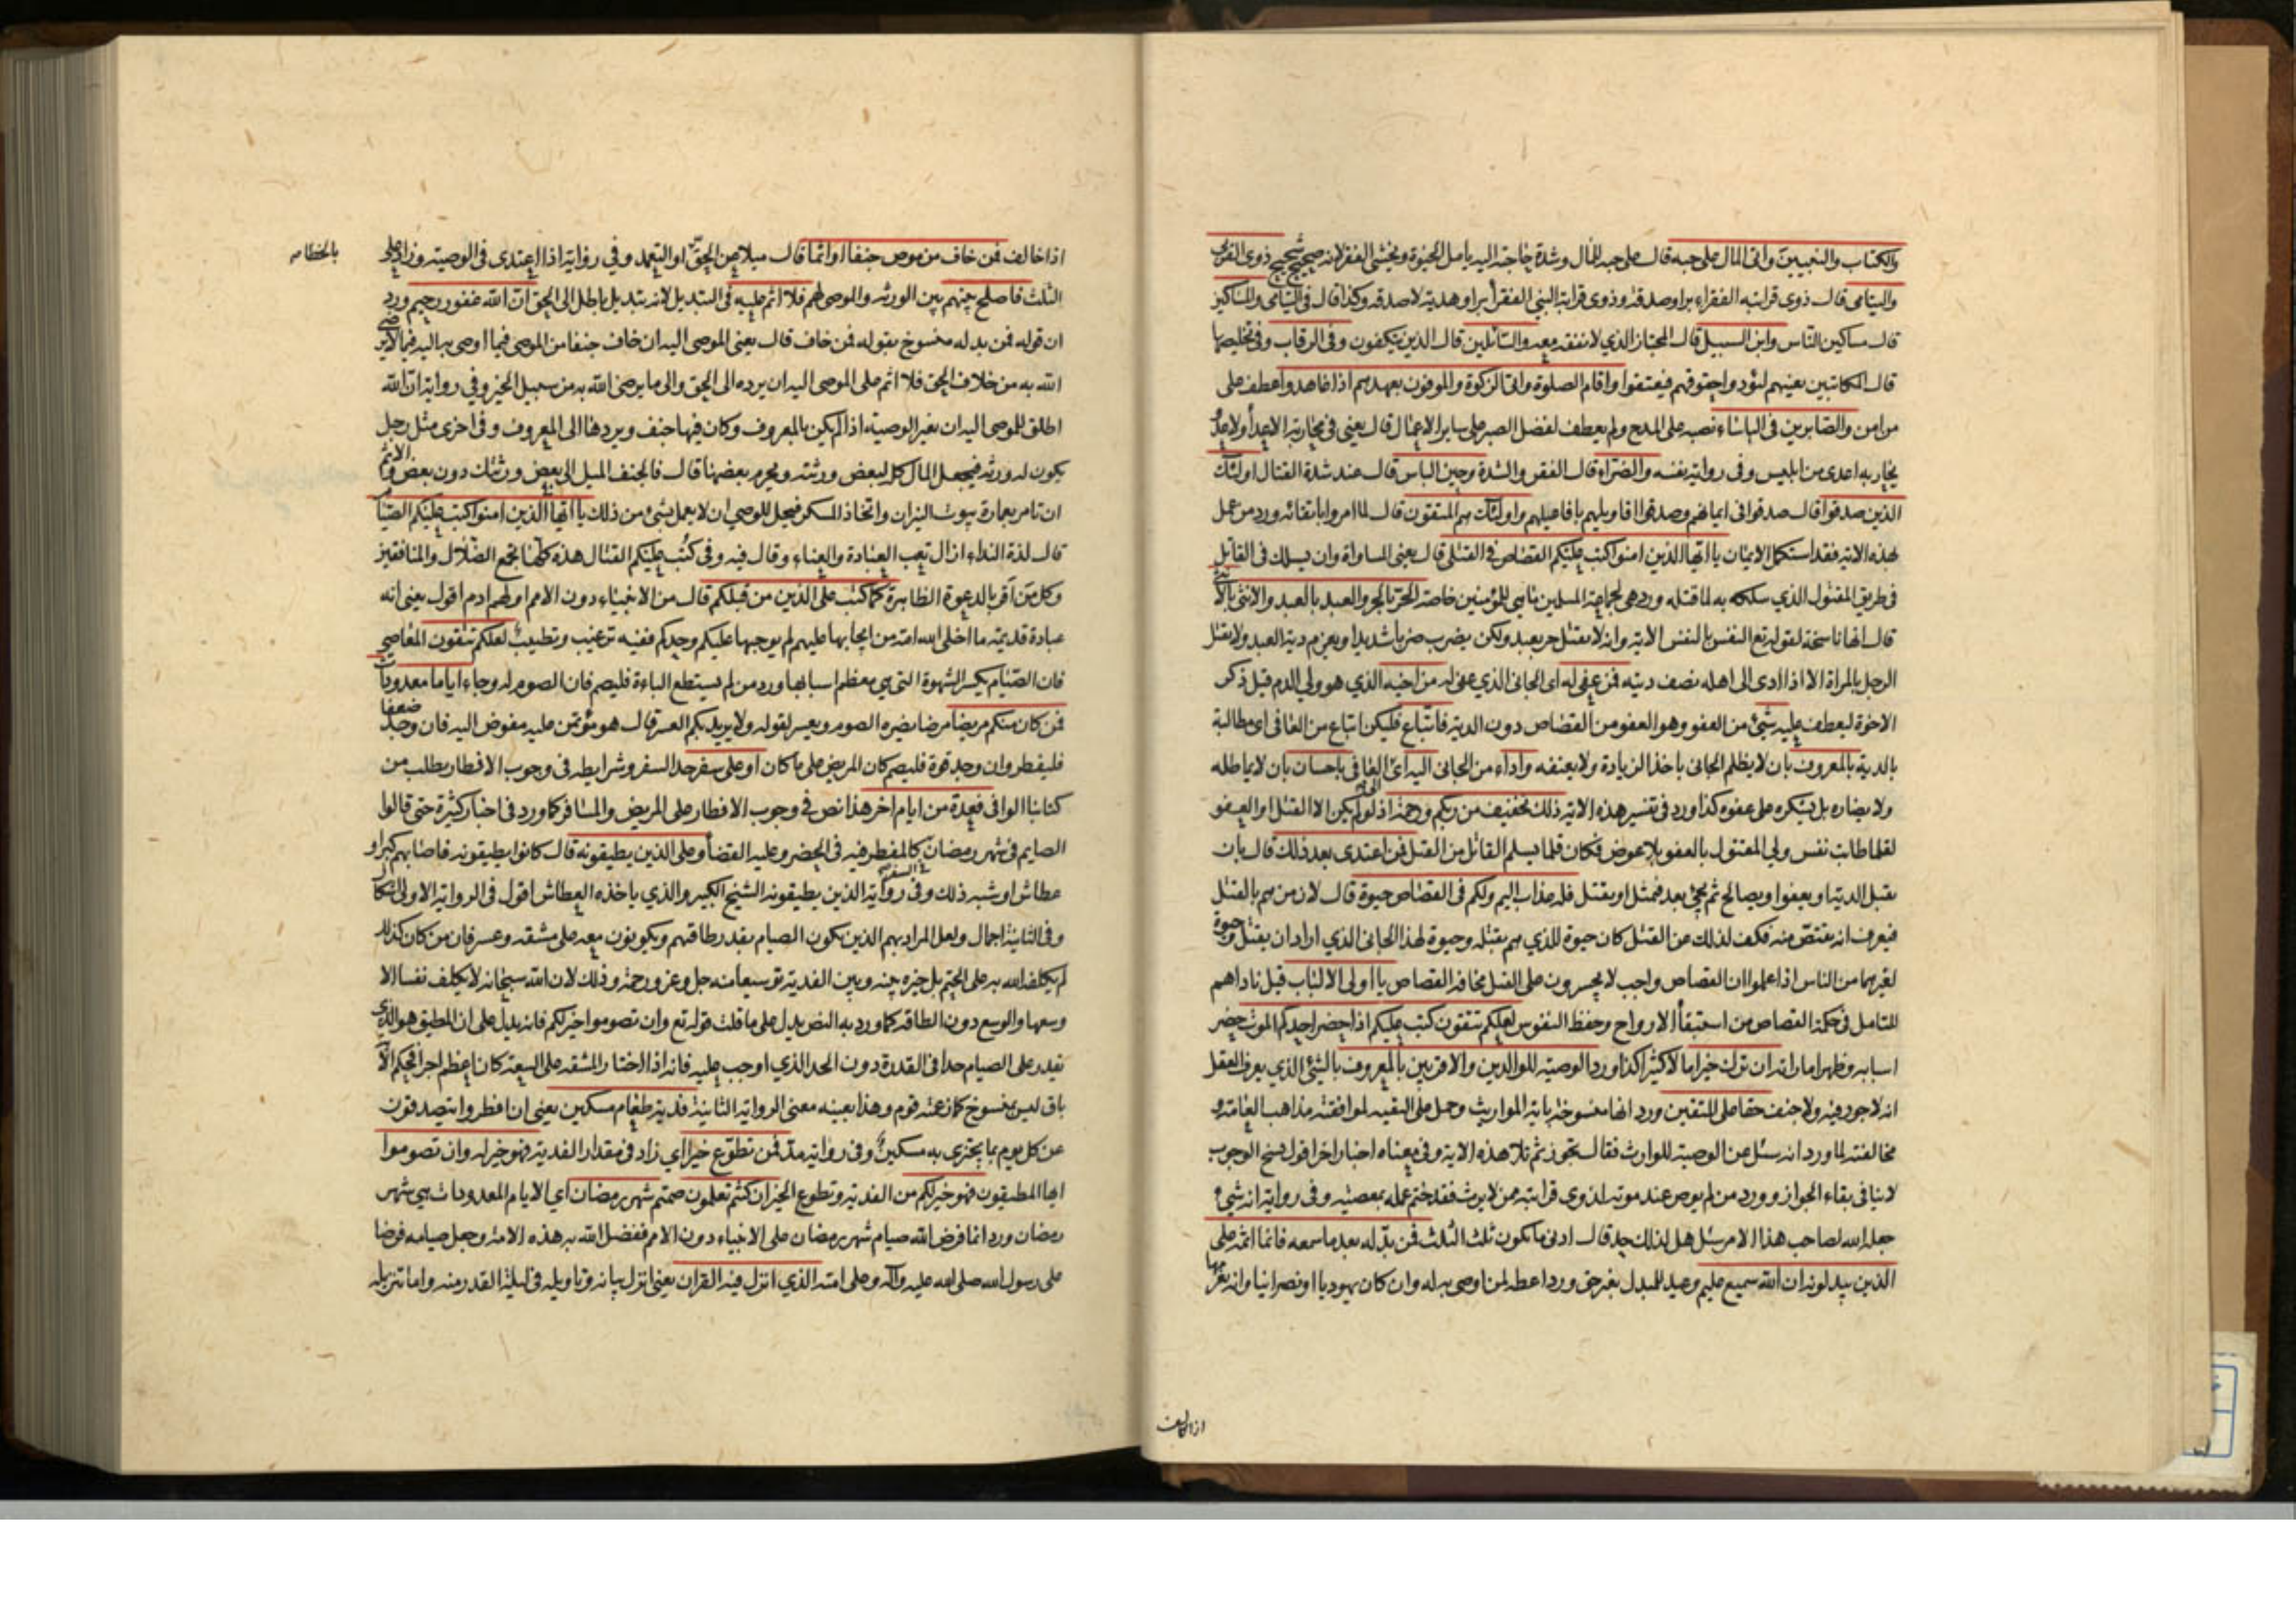 والكتاب والنبيين وآتى المال على حبه قال على حب المال وشدة حاجته اليه يأمل الحيوة ويخشى الفقر لانه صحيح شحيح ذوى القربى
واليتامى قال ذوى قرابته الفقراء برا وصدقة وذوى قرابة النبي الفقراء برا وهدية لا صدقة وكذا قال فى اليتامى والمساكين
قال مساكين الناس وابن السبيل قال المجتاز الذي لا نفقة معه والسائلين قال الذين يتكففون وفى الرقاب وفى تخليصها
قال المكاتبين يعينهم ليؤدوا حقوقهم فيعتقوا واقام الصلوة واتى الزكوة والموفون بعهدهم اذا عاهدوا عطف على
من امن والصابرين فى الباساء نصبه على المدح ولم يعطف لفضل الصبر على ساير الاعمال قال يعنى فى محاربة الاعداء ولا عدو
يحاربه اعدى من ابليس وفى رواية نفسه والضراء قال الفقر والشدة وحين الباس قال عند شدة القتال اولئك
الذين صدقوا قال صدقوا فى ايمانهم وصدقوا اقاويلهم بافاعيلهم واولئك هم المتقون قال لما امروا باتقائه ورد من عمل
بهذه الاية فقد استكمل الايمان يا ايها الذين امنوا كتب عليكم القصاص فى القتلى قال يعنى المساواة وان يسلك فى القاتل
فى طريق المقتول الذي سلكه به لما قتله ورد هى لجماعة المسلمين ما هى للمؤمنين خاصة الحر بالحر والعبد بالعبد والانثى بالانثى
قال انها ناسخة لقوله تع النفس بالنفس الاية وانه لا يقتل حر بعبد ولكن يضرب ضربا شديدا ويغرم دية العبد ولا يقتل
الرجل بالمراة الا اذا ادى الى اهله نصف ديته فمن عفى له اى الجانى الذي عفى له من اخيه الذي هو ولى الدم قيل ذكر
الاخوة ليعطف عليه شئ من العفو وهو العفو من القصاص دون الدية فاتباع فليكن اتباع من العافى اى مطالبة
بالدية بالمعروف بان لا يظلم الجانى باخذ الزيادة ولا يعنفه واداء من الجانى اليه اى العافى باحسان بان لا يماطله
ولا يضاره بل يشكره على عفوه كذا ورد فى تفسير هذه الاية ذلك تخفيف من ربكم ورحمة اذ لو لم يكن الا القتل او العفو
لقلما طابت نفس ولى المقتول بالعفو بلا عوض فكان قلما يسلم القاتل من القتل فمن اعتدى بعد ذلك قال بان
يقبل الدية او يعفوا ويصالح ثم يجئ بعد فيمثل او يقتل فله عذاب اليم ولكم فى القصاص حيوة قال لان من هم بالقتل
فيعرف انه يقتص منه فكف لذلك عن القتل كان حيوة للذي هم بقتله وحيوة لهذا الجانى الذي اراد ان يقتل وحيوة
لغيرهما من الناس اذا علموا ان القصاص واجب لا يجسرون على القتل مخافة القصاص يا اولى الالباب قيل ناداهم
للتامل فى حكمة القصاص من استبقاء الارواح وحفظ النفوس لعلكم تتقون كتب عليكم اذا حضر احدكم الموت حضر
اسبابه وظهر اماراته ان ترك خيرا مالا كثيرا كذا ورد الوصية للوالدين والاقربين بالمعروف بالشئ الذي يعرف العقل
انه لا جور فيه ولا جنف حقا على المتقين ورد انها منسوخة باية المواريث وحمل على التقية لموافقته مذاهب العامة و
مخالفته لما ورد انه سئل عن الوصية للوارث فقال تجوز ثم تلا هذه الاية وفى معناه اخبار اخر اقول نسخ الوجوب
لا ينافى بقاء الجواز وورد من لم يوص عند موته لذوى قرابته ممن لا يرث فقد ختم عمله بمعصية وفى رواية انه شئ
جعله الله لصاحب هذا الامر سئل هل لذلك حد قال ادنى ما يكون ثلث الثلث فمن بدله بعد ما سمعه فانما اثمه على
الذين يبدلونه ان الله سميع عليم وعيد للمبدل بغير حق ورد اعطه لمن اوصى به له وان كان يهوديا او نصرانيا وانه يغرمها
اذا خالف فمن خاف من موص جنفا او اثما قال ميلا عن الحق او التعمد وفي رواية اذا اعتدى فى الوصية وزاد على
بالخطا
الثلث فاصلح بينهم بين الورثه والموصى لهم فلا اثم عليه فى التبديل لانه تبديل باطل الى الحق ان الله غفور رحيم ورد
ان قوله فمن بدله منسوخ بقوله فمن خاف قال يعنى الموصى اليه ان خاف جنفا من الموصى فيما اوصى به اليه فيما لا يرضى
الله به من خلاف الحق فلا اثم على الموصى اليه ان يرده الى الحق والى ما يرضى الله به من سبيل الخير وفي رواية ان الله
اطلق للموصى اليه ان يغير الوصية اذا لم يكن بالمعروف وكان فيها جنف ويردها الى المعروف وفى اخرى مثل رجل
يكون له ورثة فيجعل المال كله لبعض ورثته ويحرم بعضها قال فالجنف الميل الى بعض ورثتك دون بعض والاثم
ان تامر بعمارة بيوت النيران واتخاذ المسكر فيحل للوصي ان لا يعمل بشئ من ذلك يا ايها الذين امنوا كتب عليكم الصيام
قال لذة النداء ازال تعب العبادة والعناء وقال فيه وفى كتب عليكم القتال هذه كلها تجمع الضلال والمنافقين
وكل من اقر بالدعوة الظاهرة كما كتب على الذين من قبلكم قال من الانبياء دون الامم اولهم ادم اقول يعنى انه
عبادة قديمة ما اخلى الله امة من ايجابها عليهم لم يوجبها عليكم وحدكم ففيه ترغيب وتطييب لعلكم تتقون المعاصي
فان الصيام يكسر الشهوة التى هى معظم اسبابها ورد من لم يستطع الباءة فليصم فان الصوم له وجاء اياما معدودات
فمن كان منكم مريضا مرضا يضره الصوم ويعسر لقوله ولا يريد بكم العسر قال هو مؤتمن عليه مفوض اليه فان وجد ضعفا
فليفطر وان وجد قوة فليصم كان المريض على ما كان او على سفر حد السفر وشرايطه فى وجوب الافطار يطلب من
كتابنا الوافى فعدة من ايام اخر هذا نص فى وجوب الافطار على المريض والمسافر كما ورد فى اخبار كثيرة حتى قالوا
الصايم فى شهر رمضان فى السفر كالمفطر فيه فى الحضر وعليه القضاء وعلى الذين يطيقونه قال كانوا يطيقونه فاصابهم كبر او
عطاش او شبه ذلك وفى رواية الذين يطيقونه الشيخ الكبير والذي ياخذه العطاش اقول فى الرواية الاولى اشكال
وفى الثانية اجمال ولعل المراد بهم الذين يكون الصيام بقدر طاقتهم ويكونون معه على مشقة وعسر فان من كان كذلك
لم يكلفه الله به على الحتم بل خيره بينه وبين الفدية توسيعا منه جل وعز ورحمة وذلك لان الله سبحانه لا يكلف نفسا الا
وسعها والوسع دون الطاقة كما ورد به النص يدل على ما قلت قوله تع وان تصوموا خير لكم فانه يدل على ان المطيق هو الذى
يقدر على الصيام حدا فى القدرة دون الحد الذي اوجب عليه فانه اذا اختار المشقة على السعة كان اعظم اجرا فحكم الاية
باق ليس بمنسوخ كما زعمته قوم وهذا بعينه معنى الرواية الثانية فدية طعام مسكين يعني ان افطروا يتصدقون
عن كل يوم بما يجتزى به مسكين وفى رواية مد فمن تطوع خيرا اي زاد فى مقدار الفدية فهو خير له وان تصوموا
ايها المطيقون فهو خير لكم من الفدية وتطوع الخير ان كنتم تعلمون صمتم شهر رمضان اي الايام المعدودات هى شهر
رمضان ورد انما فرض الله صيام شهر رمضان على الانبياء دون الامم ففضل الله به هذه الامة وجعل صيامه فرضا
على رسول الله صلى الله عليه وآله وعلى امته الذي انزل فيه القران يعنى انزل بيانه وتاويله فى ليلة القدر منه واما تنزيله